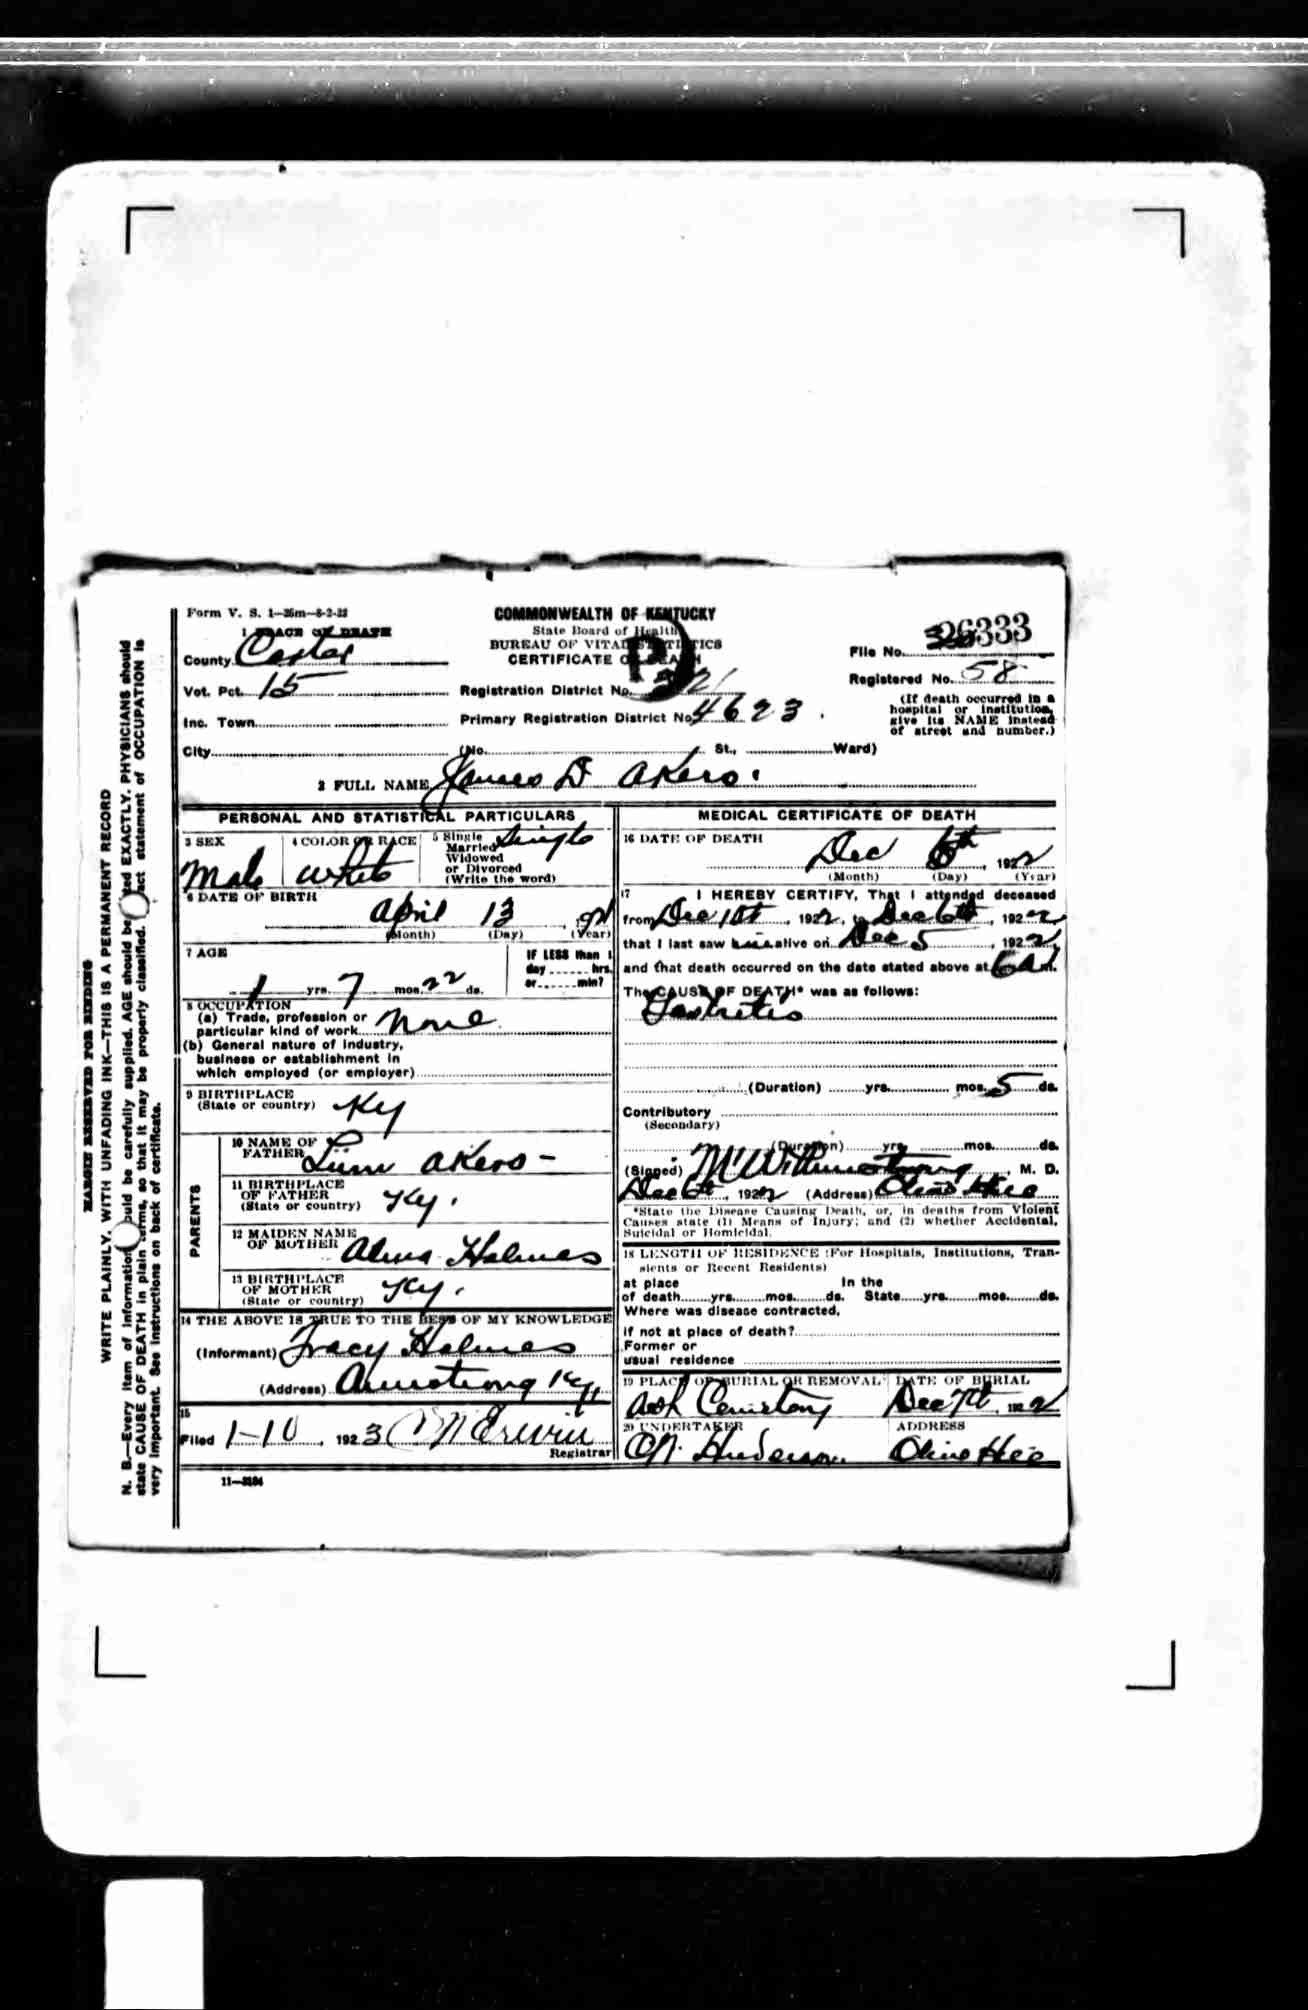 Form V. S. 1—25m—8-2-22
COMMONWEALTH OF KENTUCKY
State Board of Health
BUREAU OF VITAL STATISTICS
CERTIFICATE OF DEATH
1 PLACE OF DEATH
County Carter
Vot. Pct. 15
Inc. Town
City (No. St., Ward)
Registration District No.
Primary Registration District No. 4623
File No. 26333
Registered No. 58
(If death occurred in a
hospital or institution,
give its NAME instead
of street and number.)
2 FULL NAME James D Akers
PERSONAL AND STATISTICAL PARTICULARS
3 SEX
Male
4 COLOR OR RACE
White
5 Single
Married
Widowed
or Divorced
(Write the word)
Single
6 DATE OF BIRTH
April 13 921
(Month) (Day) (Year)
7 AGE
1 yrs. 7 mos. 22 ds.
IF LESS than 1
day hrs.
or min?
8 OCCUPATION
(a) Trade, profession or
particular kind of work None
(b) General nature of industry,
business or establishment in
which employed (or employer)
9 BIRTHPLACE
(State or country) Ky
PARENTS
10 NAME OF
FATHER Lum Akers
11 BIRTHPLACE
OF FATHER
(State or country) Ky.
12 MAIDEN NAME
OF MOTHER Alma Holmes
13 BIRTHPLACE
OF MOTHER
(State or country) Ky.
14 THE ABOVE IS TRUE TO THE BEST OF MY KNOWLEDGE
(Informant) Tracy Holmes
(Address) Armstrong Ky
15
Filed 1-10, 1923 Erwin
Registrar
11—3184
MEDICAL CERTIFICATE OF DEATH
16 DATE OF DEATH
Dec 6th, 1922
(Month) (Day) (Year)
17 I HEREBY CERTIFY, That I attended deceased
from Dec 1st, 1922, to Dec 6th, 1922
that I last saw him alive on Dec 5, 1922,
and that death occurred on the date stated above at 6 A m.
The CAUSE OF DEATH* was as follows:
Gastritis
(Duration) yrs. mos. 5 ds.
Contributory
(Secondary)
(Duration) yrs. mos. ds.
(Signed) M. D.
Dec 6th, 1922 (Address) Olive Hill
*State the Disease Causing Death, or, in deaths from Violent
Causes state (1) Means of Injury; and (2) whether Accidental,
Suicidal or Homicidal.
18 LENGTH OF RESIDENCE (For Hospitals, Institutions, Tran-
sients or Recent Residents)
at place In the
of death yrs. mos. ds. State yrs. mos. ds.
Where was disease contracted,
if not at place of death?
Former or
usual residence
19 PLACE OF BURIAL OR REMOVAL
Cemetery
DATE OF BURIAL
Dec 7th, 1922
20 UNDERTAKER
Henderson
ADDRESS
Olive Hill
MARGIN RESERVED FOR BINDING
WRITE PLAINLY, WITH UNFADING INK—THIS IS A PERMANENT RECORD
N. B.—Every item of information should be carefully supplied. AGE should be stated EXACTLY. PHYSICIANS should
state CAUSE OF DEATH in plain terms, so that it may be properly classified. Exact statement of OCCUPATION is
very important. See instructions on back of certificate.